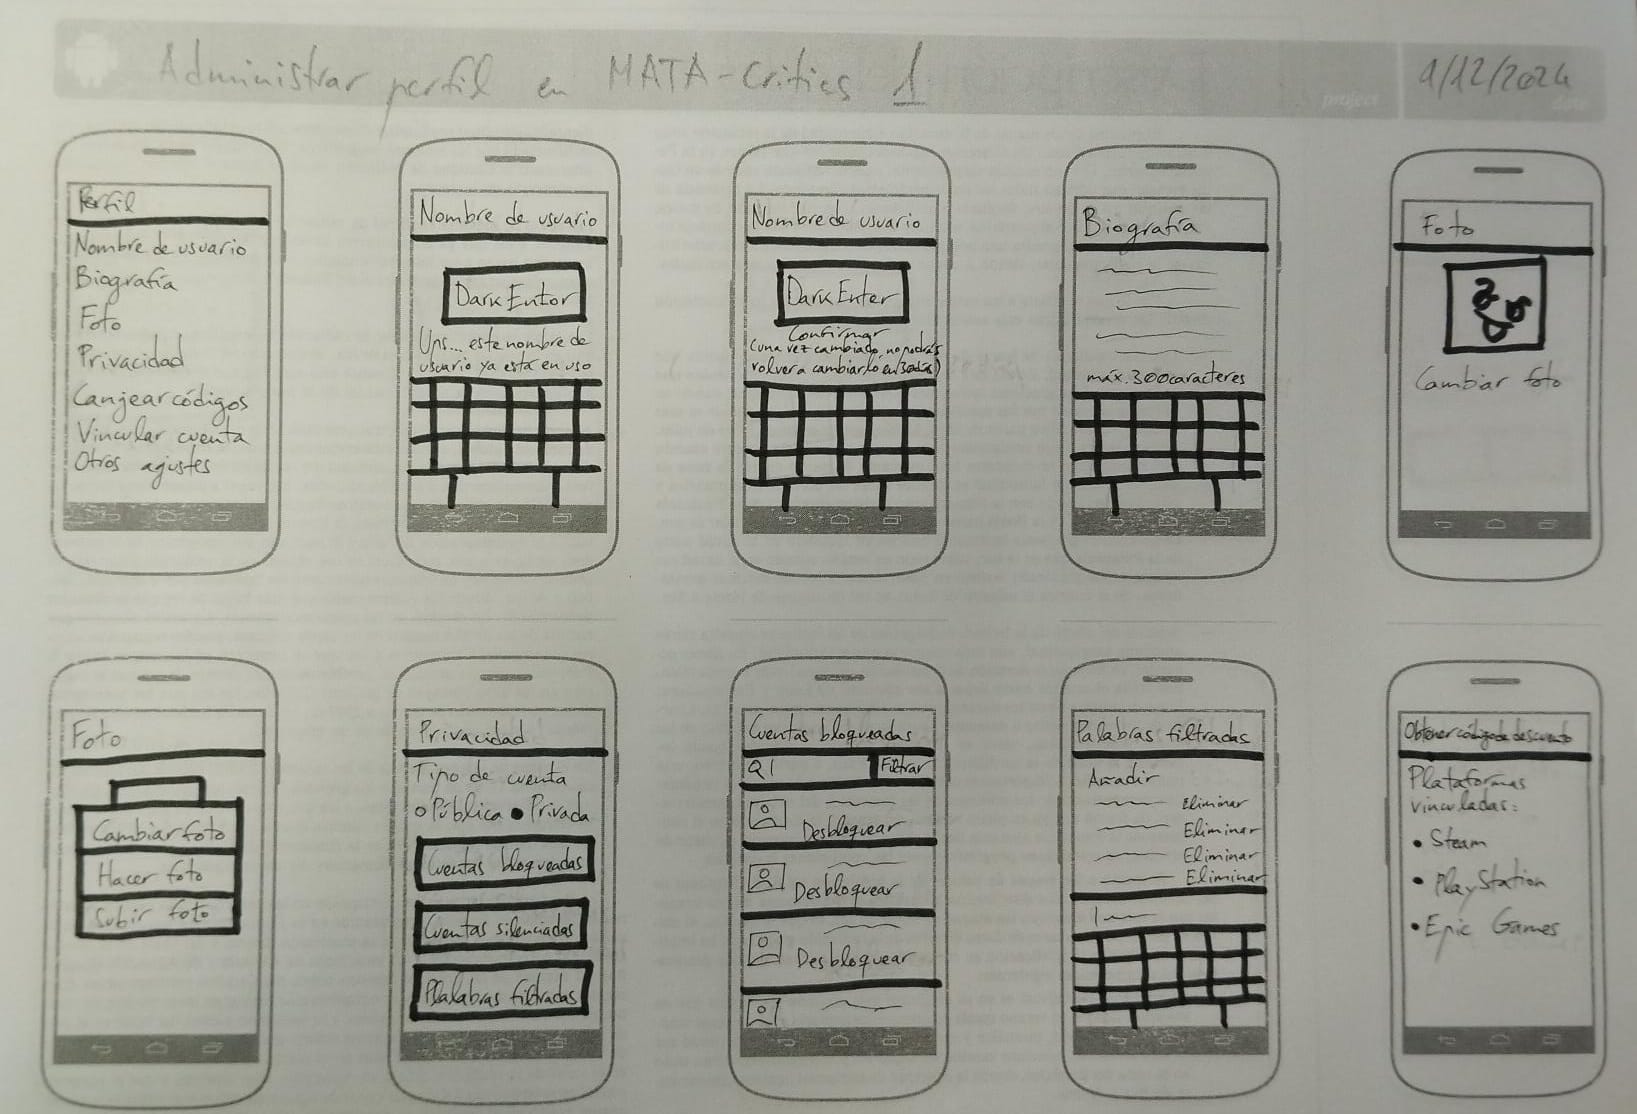 Administrar perfil en MATA-critics 1
project
9/12/2024
date
Perfil
Nombre de usuario
Biografía
Foto
Privacidad
Canjear códigos
Vincular cuenta
Otros agustes
Nombre de usuario
Dark Entor
Ups... este nombre de
usuario ya está en uso
Nombre de usuario
Dark Enter
Confirmar
(una vez cambiado, no podrás
volver a cambiarlo en 30 días)
Biografía
máx. 300 caracteres
Foto
Cambiar foto
Foto
Cambiar foto
Hacer foto
Subir foto
Privacidad
Tipo de cuenta
Pública Privada
Cuentas bloqueadas
Cuentas silenciadas
Plalabras filtradas
Cuentas bloqueadas
Filtrar
Desbloquear
Desbloquear
Desbloquear
Palabras filtradas
Añadir
Eliminar
Eliminar
Eliminar
Eliminar
Obtener código de descuento
Plataformas
vinculadas:
• Steam
• PlayStation
• Epic Games